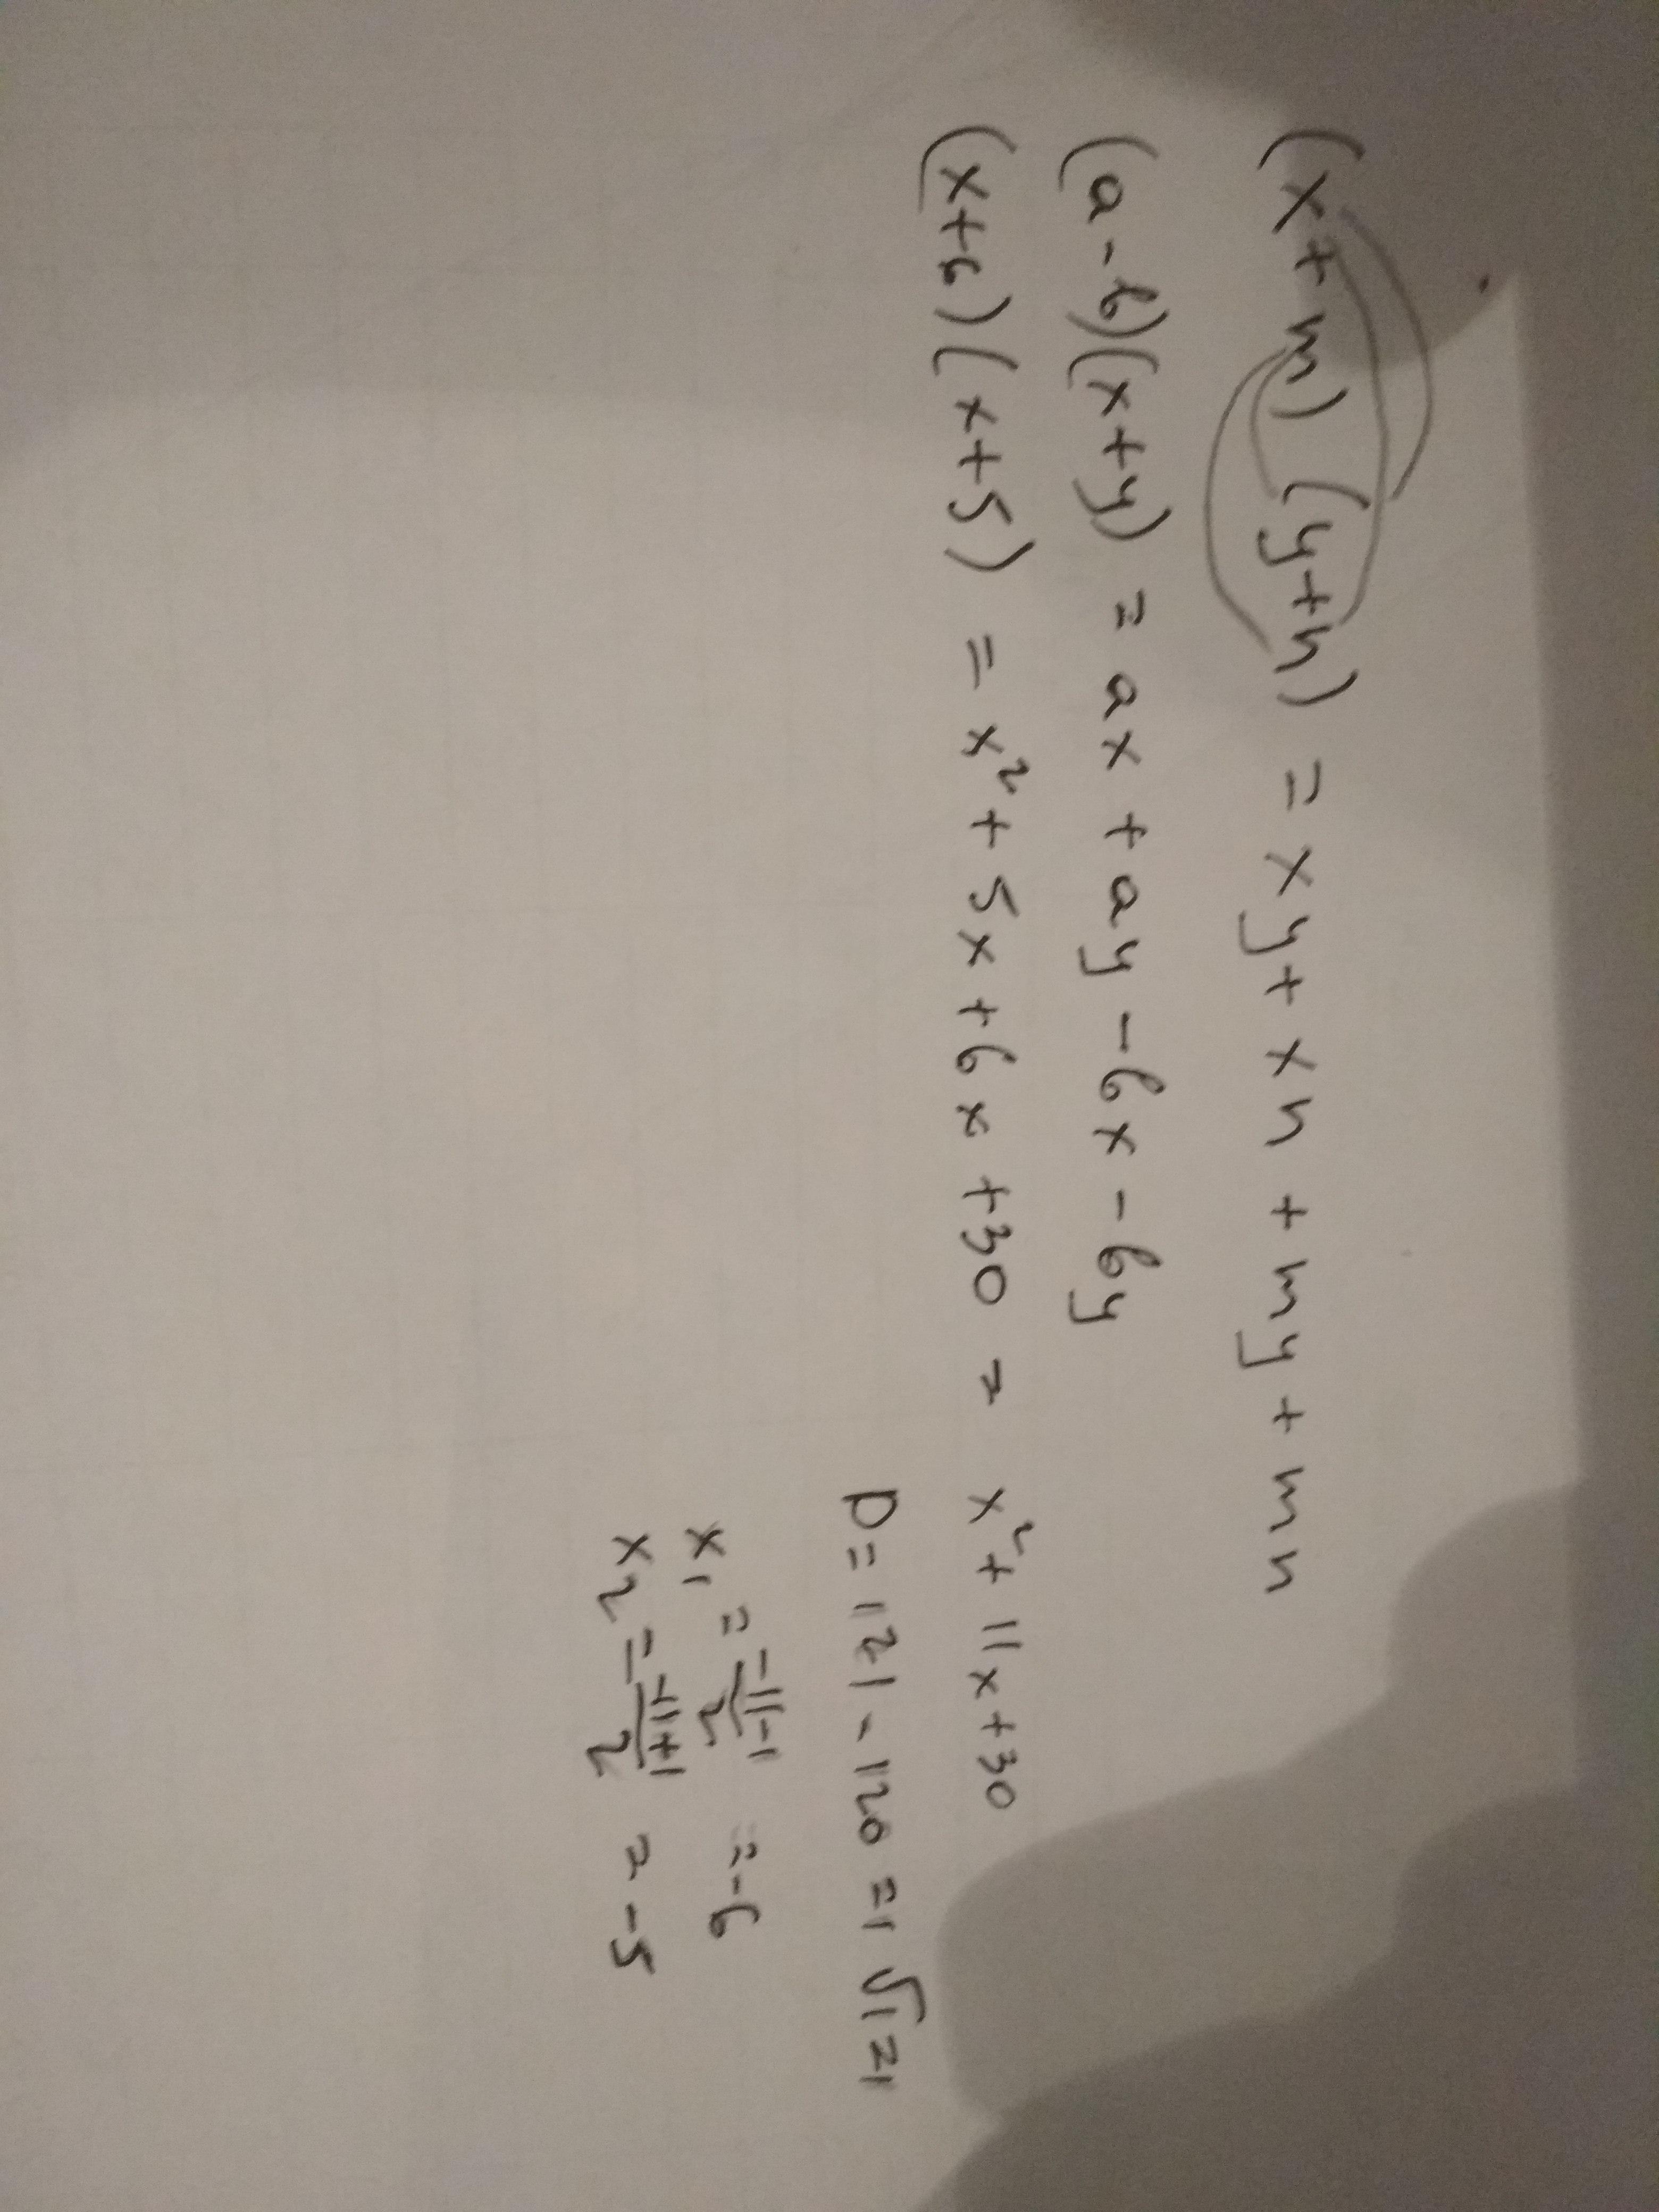 (x+m)(y+n) = xy + xn + my + mn
(a-b)(x+y) = ax + ay - bx - by
(x+6)(x+5) = x² + 5x + 6x + 30 = x² + 11x + 30
D = 121 - 120 = 1 √1 = 1
x₁ = \frac{-11-1}{2} = -6
x₂ = \frac{-11+1}{2} = -5